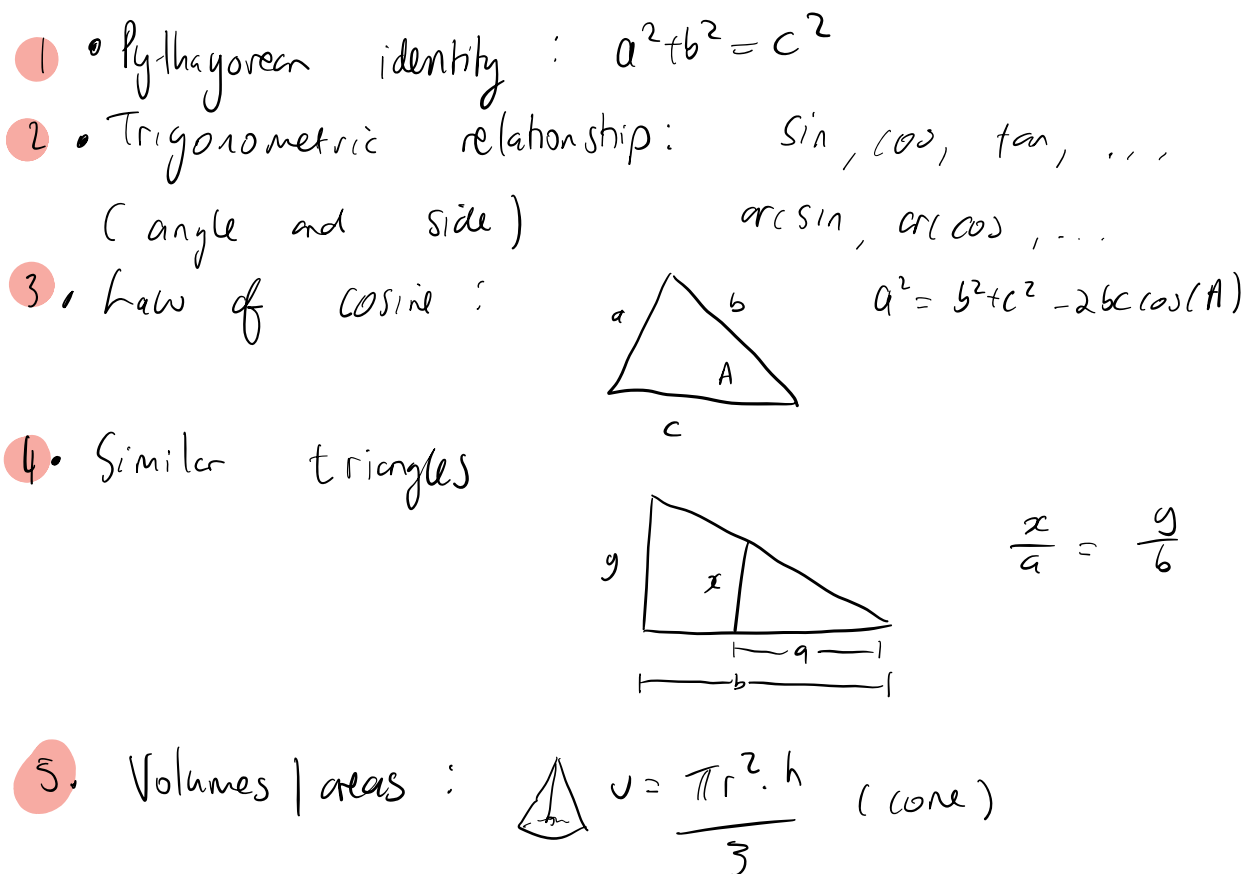 1 • Pythagorean identity : a²+b² = c²
2 • Trigonometric relationship: sin, cos, tan, ...
(angle and side) arcsin, arccos, ...
3 • Law of cosine : a² = b²+c² -2bc cos(A)
a b
A
c
4 • Similar triangles
x/a = y/b
y x
a
b
5. Volumes | areas : v = πr².h / 3 (cone)